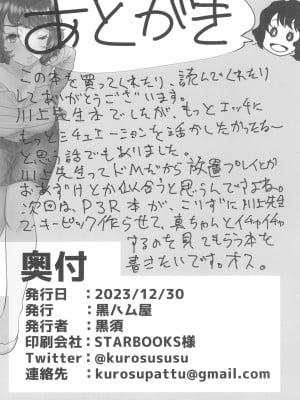 あとがき
この本を買ってくれたり、読んでくれたり
してありがとうございます。
川上先生本でしたが、もっとエッチに
もっとシチュエーションを活かしたかったな〜
と思う話でもありました。
川上先生ってドMだから放置プレイとか
おあずけとか似合うと思うんですよね。
次回は、P3R本が、こりずに川上先生
でキーピック作らせて、真ちゃんとイチャイチャ
するのを見てもらう本を
書きたいです。オス。
奥付
発行日 :2023/12/30
発行 :黒ハム屋
発行者 :黒須
印刷会社:STARBOOKS様
Twitter :@kurosususu
連絡先 :kurosupattu@gmail.com